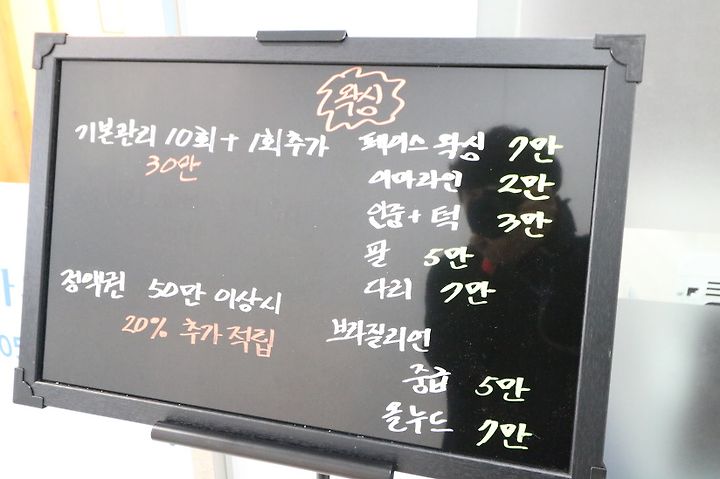 왁싱
기본관리 10회 + 1회추가
30만
정액권 50만 이상시
20% 추가적립
페이스 왁싱 7만
이마라인 2만
인중 + 턱 3만
팔 5만
다리 7만
브라질리언
중급 5만
올누드 7만